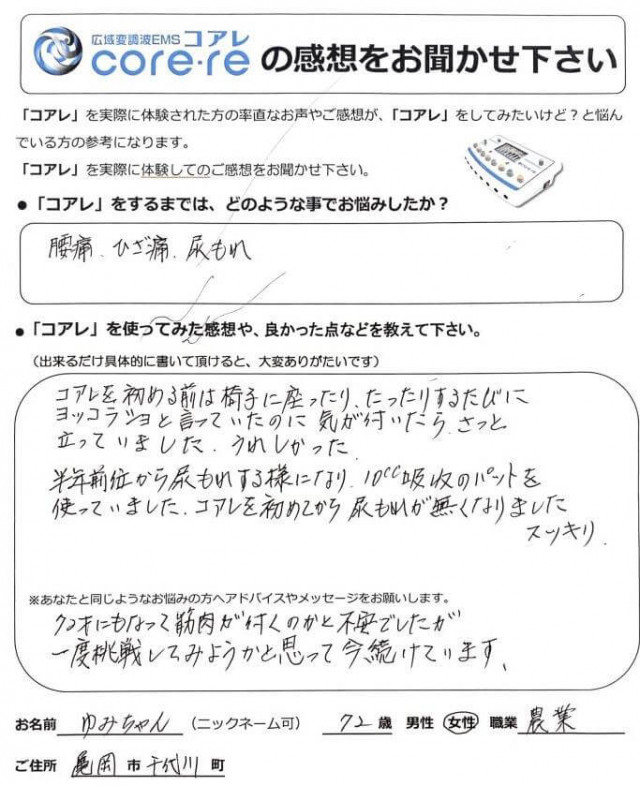 広域変調波EMS コアレ
core·re の感想をお聞かせ下さい
「コアレ」を実際に体験された方の率直なお声やご感想が、「コアレ」をしてみたいけど?と悩ん
でいる方の参考になります。
「コアレ」を実際に体験してのご感想をお聞かせ下さい。
● 「コアレ」をするまでは、どのような事でお悩みしたか?
腰痛、ひざ痛、尿もれ
● 「コアレ」を使ってみた感想や、良かった点などを教えて下さい。
(出来るだけ具体的に書いて頂けると、大変ありがたいです)
コアレを初める前は椅子に座ったり、たったりするたびに
ヨッコラショと言っていたのに 気が付いたら、さっと
立っていました。うれしかった
半年前位から尿もれする様になり、10cc吸収のパットを
使っていました。コアレを初めてから 尿もれが無くなりました
スッキリ、
※あなたと同じようなお悩みの方へアドバイスやメッセージをお願いします。
72才にもなって筋肉が付くのかと不安でしたが
一度挑戦してみようかと思って今、続けています、
お名前 ゆみちゃん (ニックネーム可) 72 歳 男性 女性 職業 農業
ご住所 亀岡 市 千代川 町